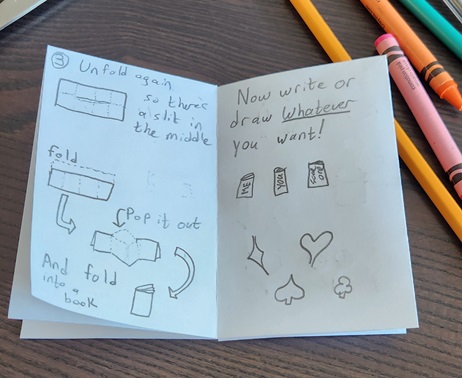 3 Unfold again
so there's
a slit in
the middle
fold
Pop it out
And fold
into a
book
Now write or
draw whatever
you want!
ME
YOU